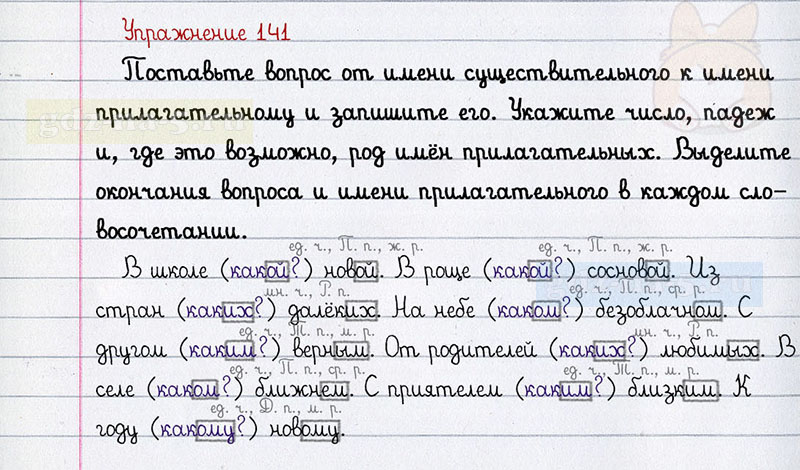 Упражнение 141
Поставьте вопрос от имени существительного к имени
прилагательному и запишите его. Укажите число, падеж
и, где это возможно, род имён прилагательных. Выделите
окончания вопроса и имени прилагательного в каждом сло-
восочетании.
ед. ч., П. п., ж. р. ед. ч., П. п., ж. р.
В школе (какой?) новой. В роще (какой?) сосновой. Из
мн. ч., Р. п. ед. ч., П. п., ср. р.
стран (каких?) далёких. На небе (каком?) безоблачном. С
ед. ч., Т. п., м. р. мн. ч., Р. п.
другом (каким?) верным. От родителей (каких?) любимых. В
ед. ч., П. п., ср. р. ед. ч., Т. п., м. р.
селе (каком?) ближнем. С приятелем (каким?) близким. К
ед. ч., Д. п., м. р.
году (какому?) новому.